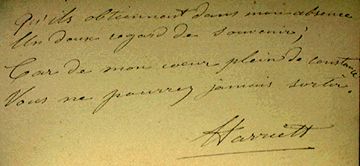 Qu'ils obtiennent dans mon absence
Un doux regard de souvenir;
Car de mon coeur plein de constance
Vous ne pourrez jamais sortir.
Harriett